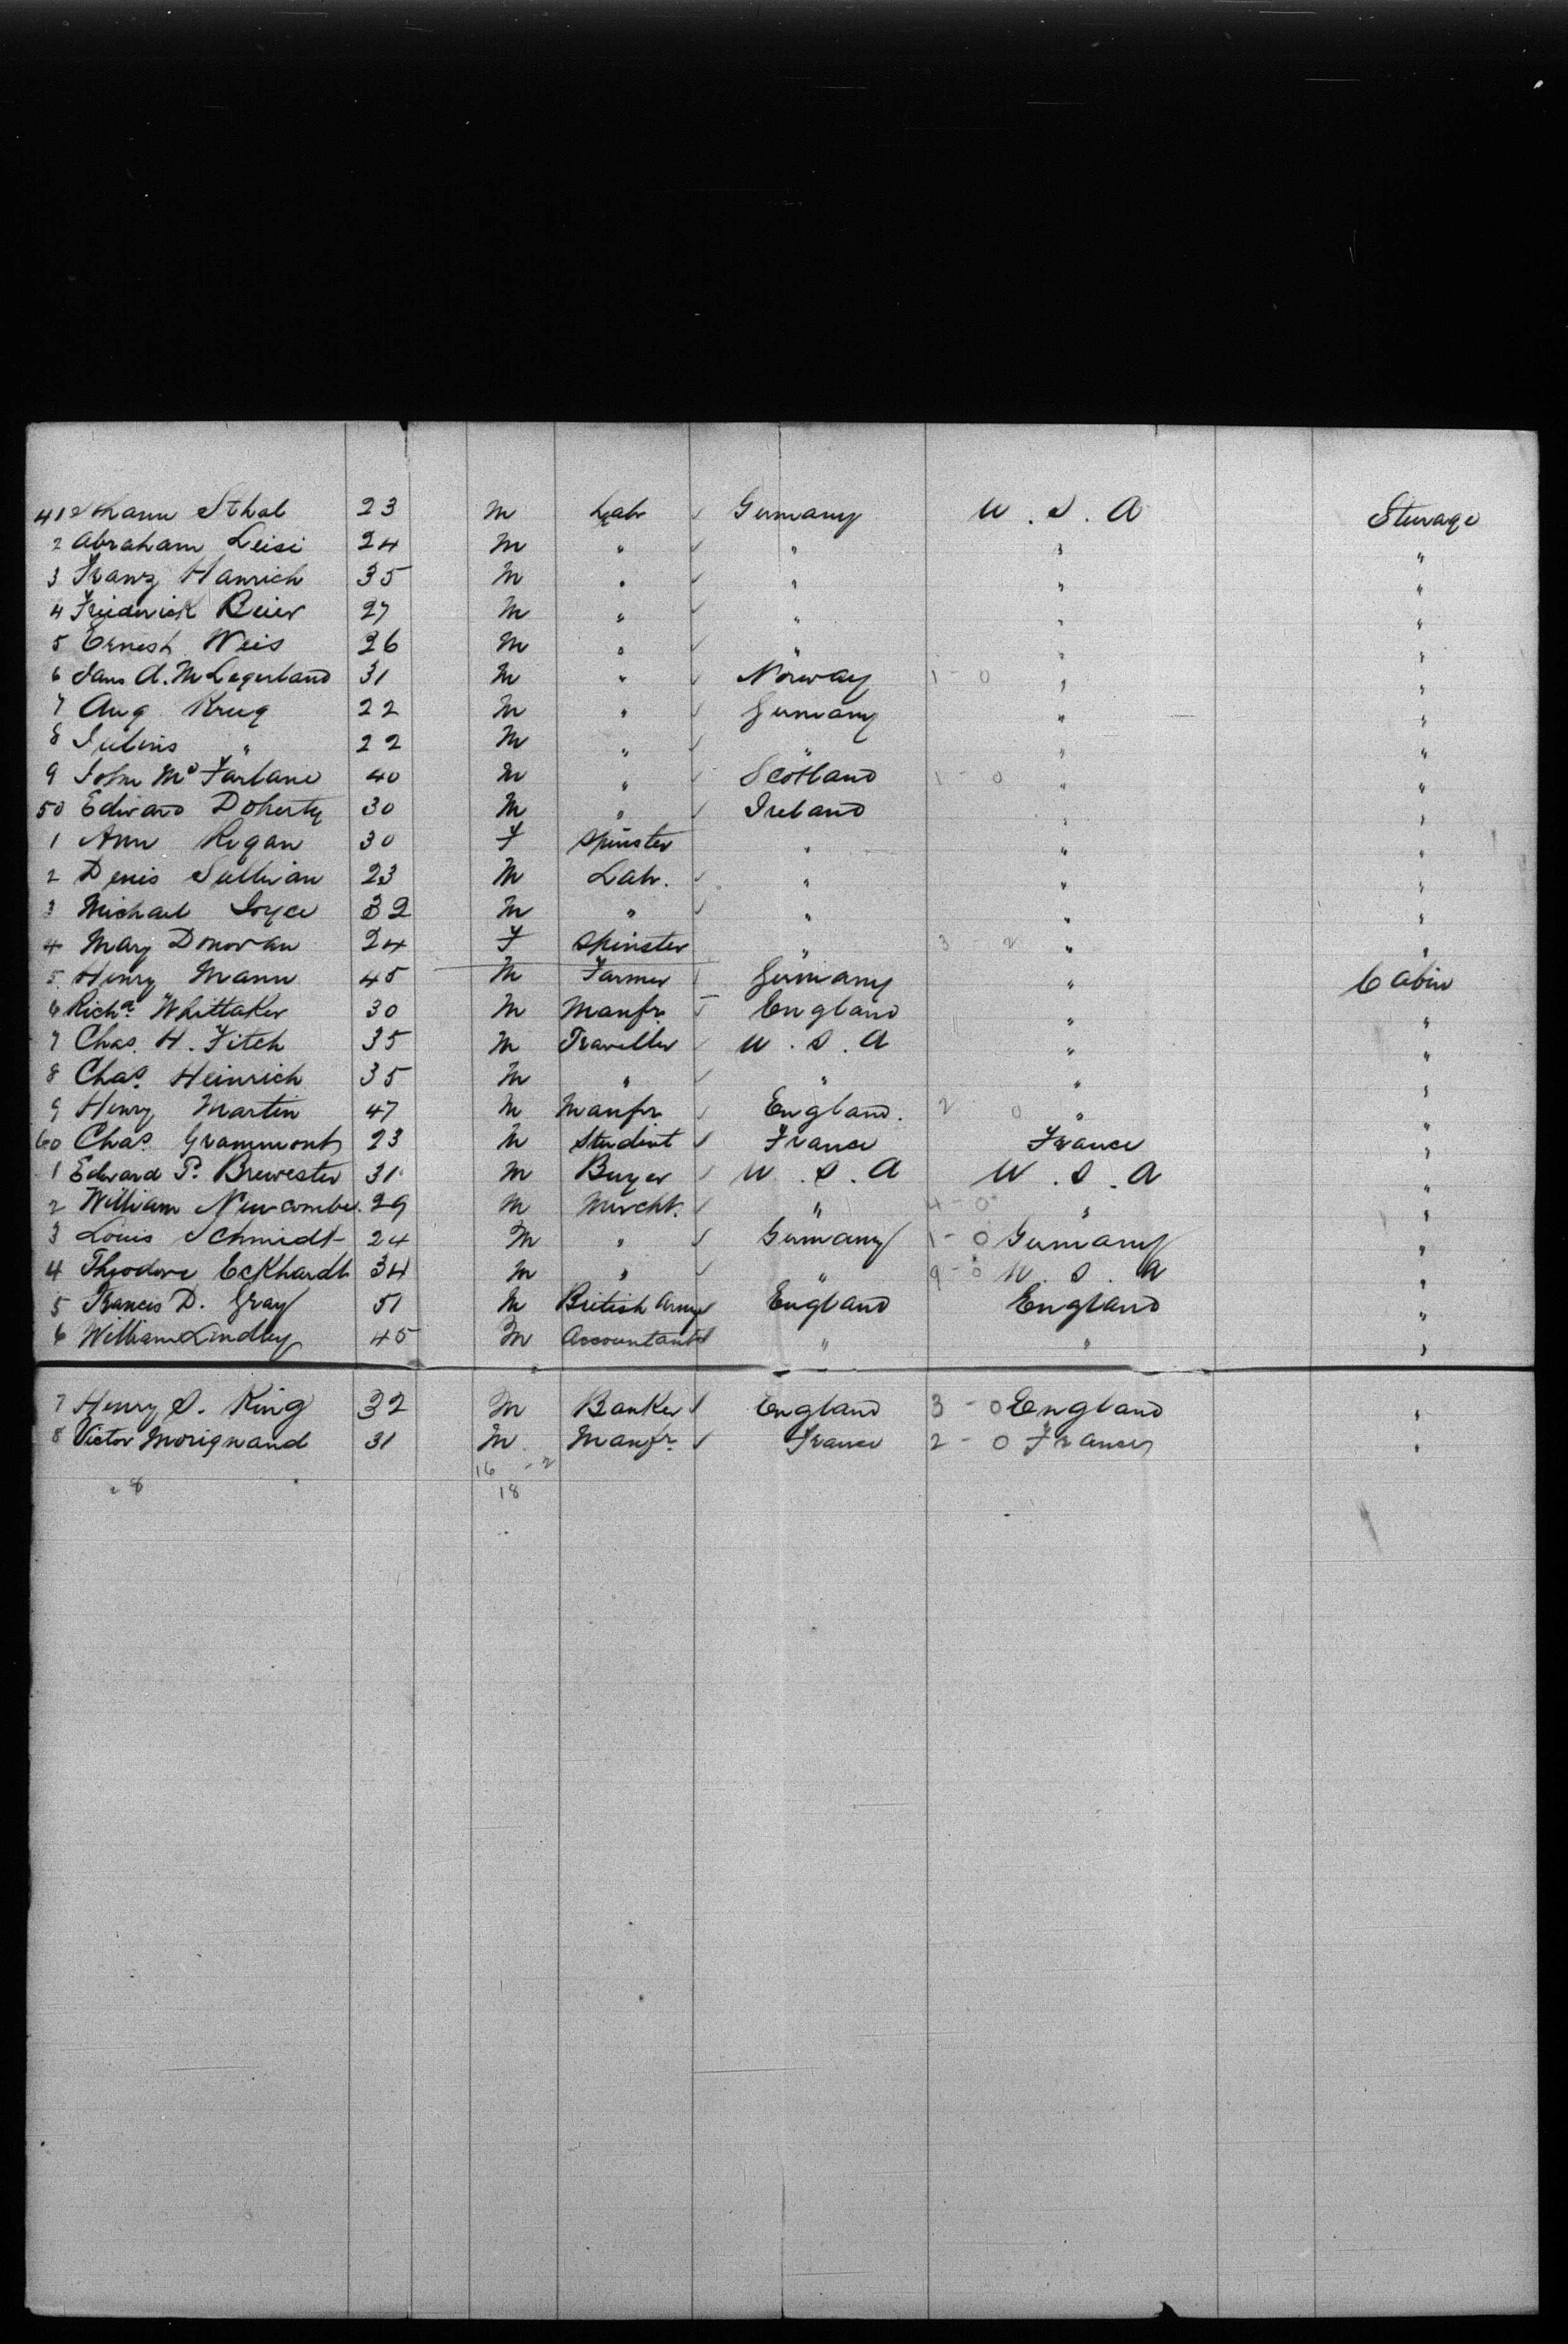 41 Sthal 23 M Labr Germany U.S.A Sterage
2 Abraham Leisi 24 M " " " "
3 Franz Hanrich 35 M " " " "
4 Friederick Beier 27 M " " " "
5 Ernest Weis 26 M " " " "
6 A. M Legerland 31 M " Norway 1 - 0 " "
7 Aug Krug 22 M " Germany " "
8 Julius " 22 M " " " "
9 John Mc Farlane 40 M " Scotland 1 - 0 " "
50 Edward Doherty 30 M " Ireland " "
1 Ann Regan 30 F Spinster " " "
2 Denis Sullivan 23 M Labr. " " "
3 Michael Joyce 32 M " " " "
4 Mary Donovan 24 F Spinster " 3 2 " "
5 Henry Mann 45 M Farmer Germany " Cabin
6 Richd Whittaker 30 M Manfr England " "
7 Chas. H. Fitch 35 M Traveller U.S.A " "
8 Chas. Heinrich 35 M " " " "
9 Henry Martin 47 M Manfr England. 2 0 " "
60 Chas. Grammont 23 M Student France France "
1 Edward P. Brewester 31 M Buyer U.S.A U.S.A "
2 William Newcombe. 29 M Mercht. " 4 - 0 " "
3 Louis Schmidt 24 M " Germany 1 - 0 Germany "
4 Theodore Eckhardt 34 M " " 9 - 0 U.S.A "
5 Francis D. Gray 51 M British Army England England "
6 William Lindley 45 M Accountant " " "
7 Henry S. King 32 M Banker England 3 - 0 England "
8 Victor Morignand 31 M Manfr. France 2 - 0 France "
16 - 2
28 18